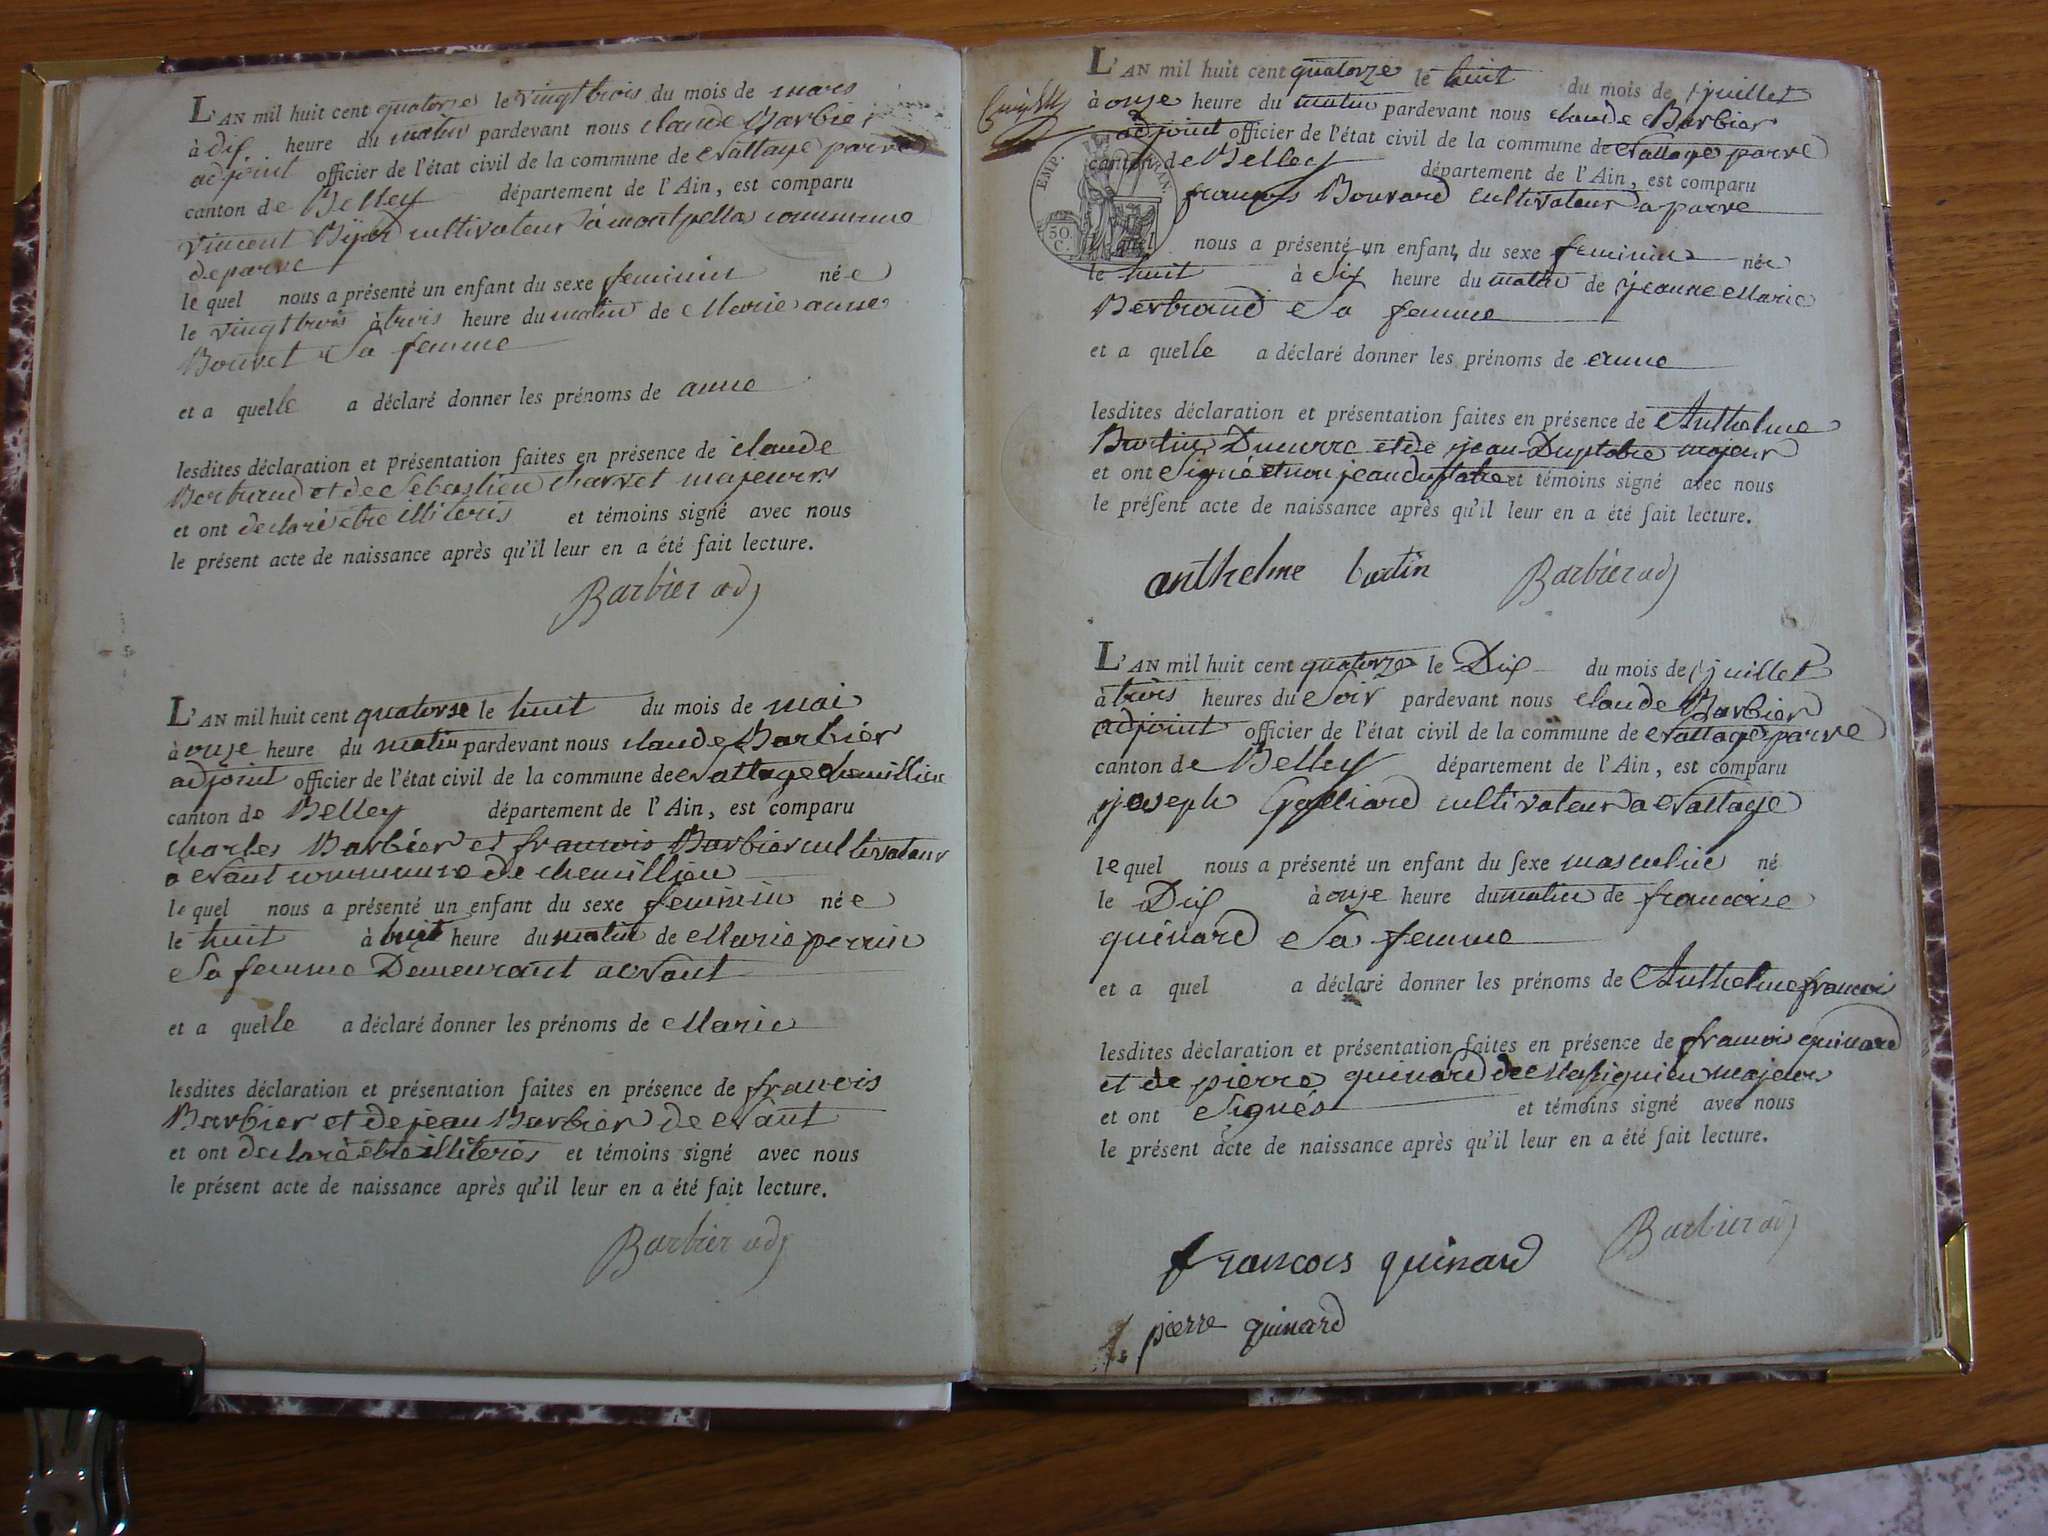 L'AN mil huit cent quatorse le vingt trois du mois de mars
à dix heure du matin pardevant nous claude Barbier
adjoint officier de l'état civil de la commune de Nattage parve
canton de Belley département de l'Ain, est comparu
vincent cultivateur à montpella commune
de parve
le quel nous a présenté un enfant du sexe feminin née
le vingt trois à trois heure du matin de Marie anne
Bouvet Sa femme
et a quelle a déclaré donner les prénoms de anne
lesdites déclaration et présentation faites en présence de claude
Bertrand et de Sebastien charvet majeurs
et ont declaré etre illiteris et témoins signé avec nous
le présent acte de naissance après qu'il leur en a été fait lecture.
Barbier adj
L'AN mil huit cent quatorse le huit du mois de mai
à onze heure du matin pardevant nous claude Barbier
adjoint officier de l'état civil de la commune de Nattage chemillieu
canton de Belley département de l'Ain, est comparu
charles Barbier et francois Barbier cultivateur
a Nant commune de chemillieu
le quel nous a présenté un enfant du sexe feminin née
le huit à huit heure du matin de Marie perrin
Sa femme Demeurant a Nant
et a quelle a déclaré donner les prénoms de Marie
lesdites déclaration et présentation faites en présence de francois
Barbier et de jean Barbier de Nant
et ont declaré etre illiterés et témoins signé avec nous
le présent acte de naissance après qu'il leur en a été fait lecture.
Barbier adj
L'AN mil huit cent quatorze le huit du mois de juillet
à onze heure du matin pardevant nous claude Barbier
adjoint officier de l'état civil de la commune de Nattage parve
canton de Belley département de l'Ain, est comparu
EMP. FRAN.
50
C.
françois Bouvard cultivateur a parve
le quel nous a présenté un enfant du sexe feminin née
le huit à Six heure du matin de jeanne Marie
Bertrand Sa femme
et a quelle a déclaré donner les prénoms de anne
lesdites déclaration et présentation faites en présence de Anthelme
Burtin et de jean majeur
et ont Signé et non jean et témoins signé avec nous
le présent acte de naissance après qu'il leur en a été fait lecture.
anthelme burtin Barbier adj
L'AN mil huit cent quatorze le Dix du mois de juillet
à trois heures du Soir pardevant nous claude Barbier
adjoint officier de l'état civil de la commune de Nattage parve
canton de Belley département de l'Ain, est comparu
joseph Galliard cultivateur a Nattage
le quel nous a présenté un enfant du sexe masculin né
le Dix à onze heure du matin de francoise
quinard Sa femme
et a quel a déclaré donner les prénoms de Anthelme francois
lesdites déclaration et présentation faites en présence de francois quinard
et de pierre quinard de Massignieu majeurs
et ont Signés et témoins signé avec nous
le présent acte de naissance après qu'il leur en a été fait lecture.
Barbier adj
francois quinard
pierre quinard